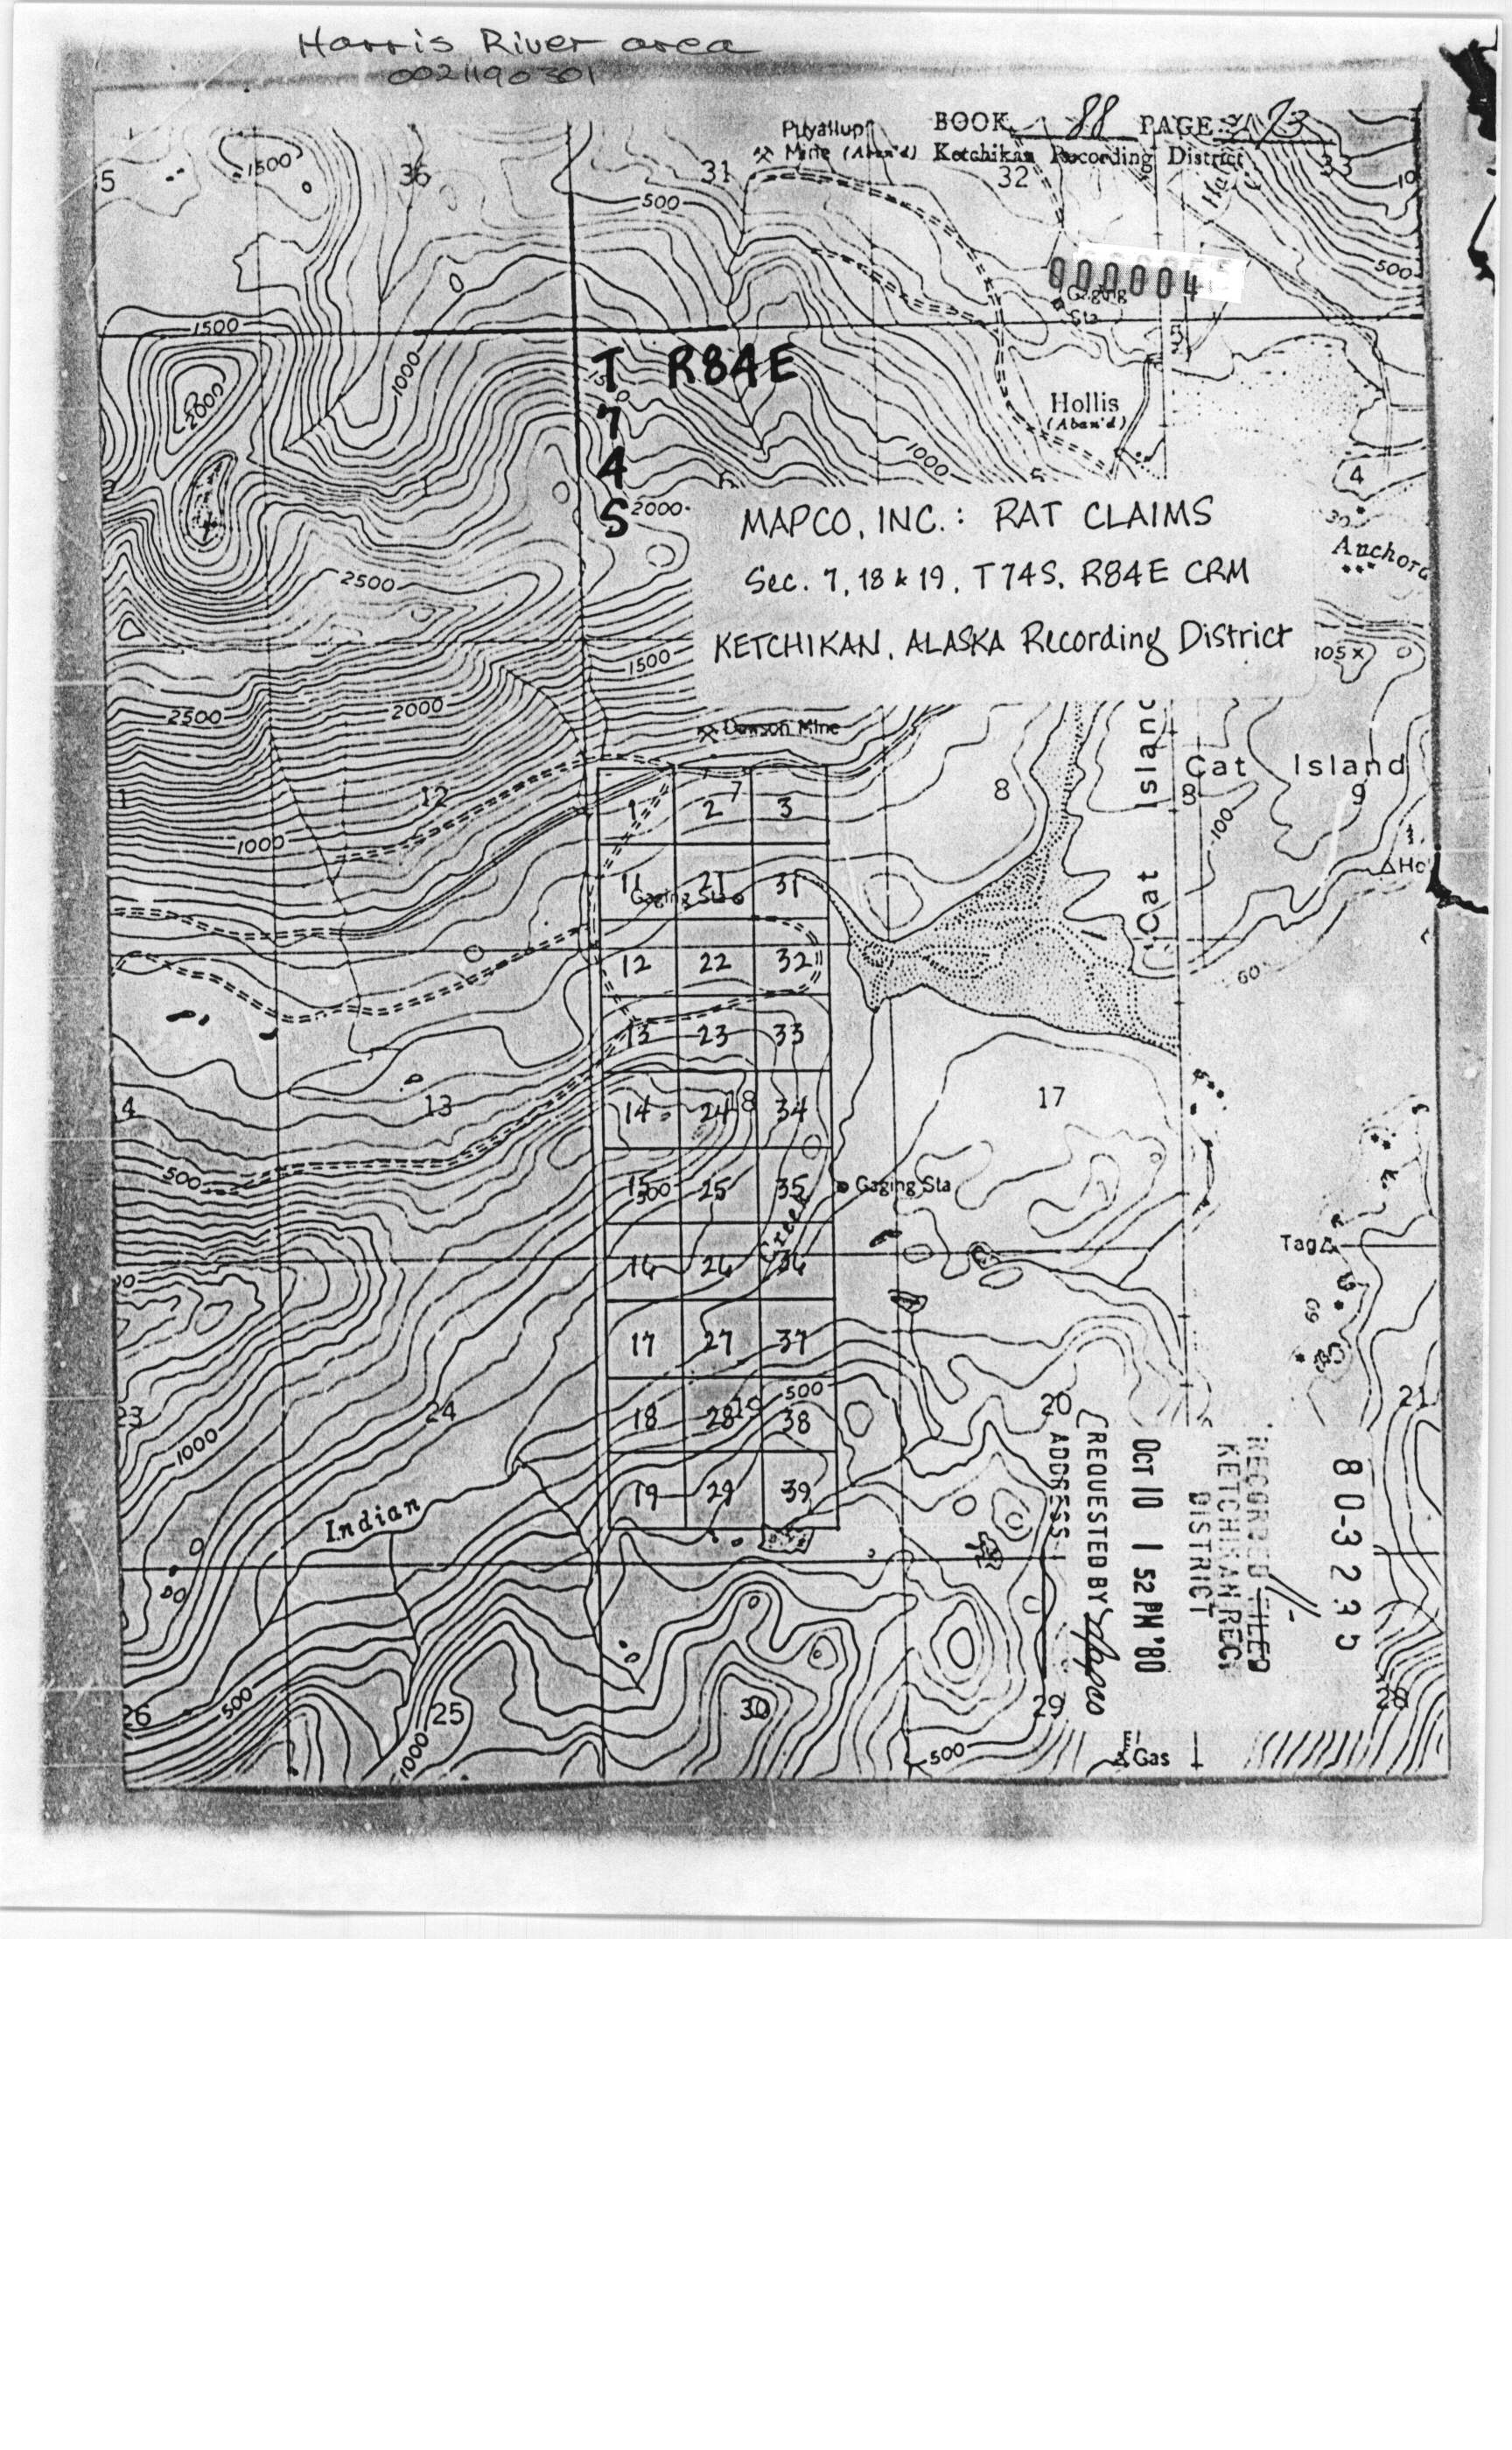 Harris River area
0021190301
BOOK 88 PAGE
Puyallup
Mine (Aban'd) Ketchikan Recording District
1500
36
31
32
33
500
10
500
000004
Gaging
Sta
1500
T R84E
7
4
S
1000
2000
Hollis
(Aban'd)
1000
4
30
2000
MAPCO, INC.: RAT CLAIMS
Sec. 7, 18 & 19, T74S, R84E CRM
KETCHIKAN, ALASKA Recording District
Anchora
2500
1500
105 x
2500
2000
Dawson Mine
Cat Island
Cat Island
12
1 2 7 3
8
8
9
100
1000
11 21 31
Gaging Sta
60
12 22 32
13 23 33
14
13
14 24 18 34
17
500
15 500 25 35
Gaging Sta
Creek
16 26 36
Tag
60
17 27 37
500
23
24
18 28 19 38
20
21
1000
19 29 39
Indian
80-3235
RECORDED FILED
KETCHIKAN REC
DISTRICT
OCT 10 1 52 PM '80
REQUESTED BY
ADDRESS
26
500
25
1000
30
29
28
500
Gas